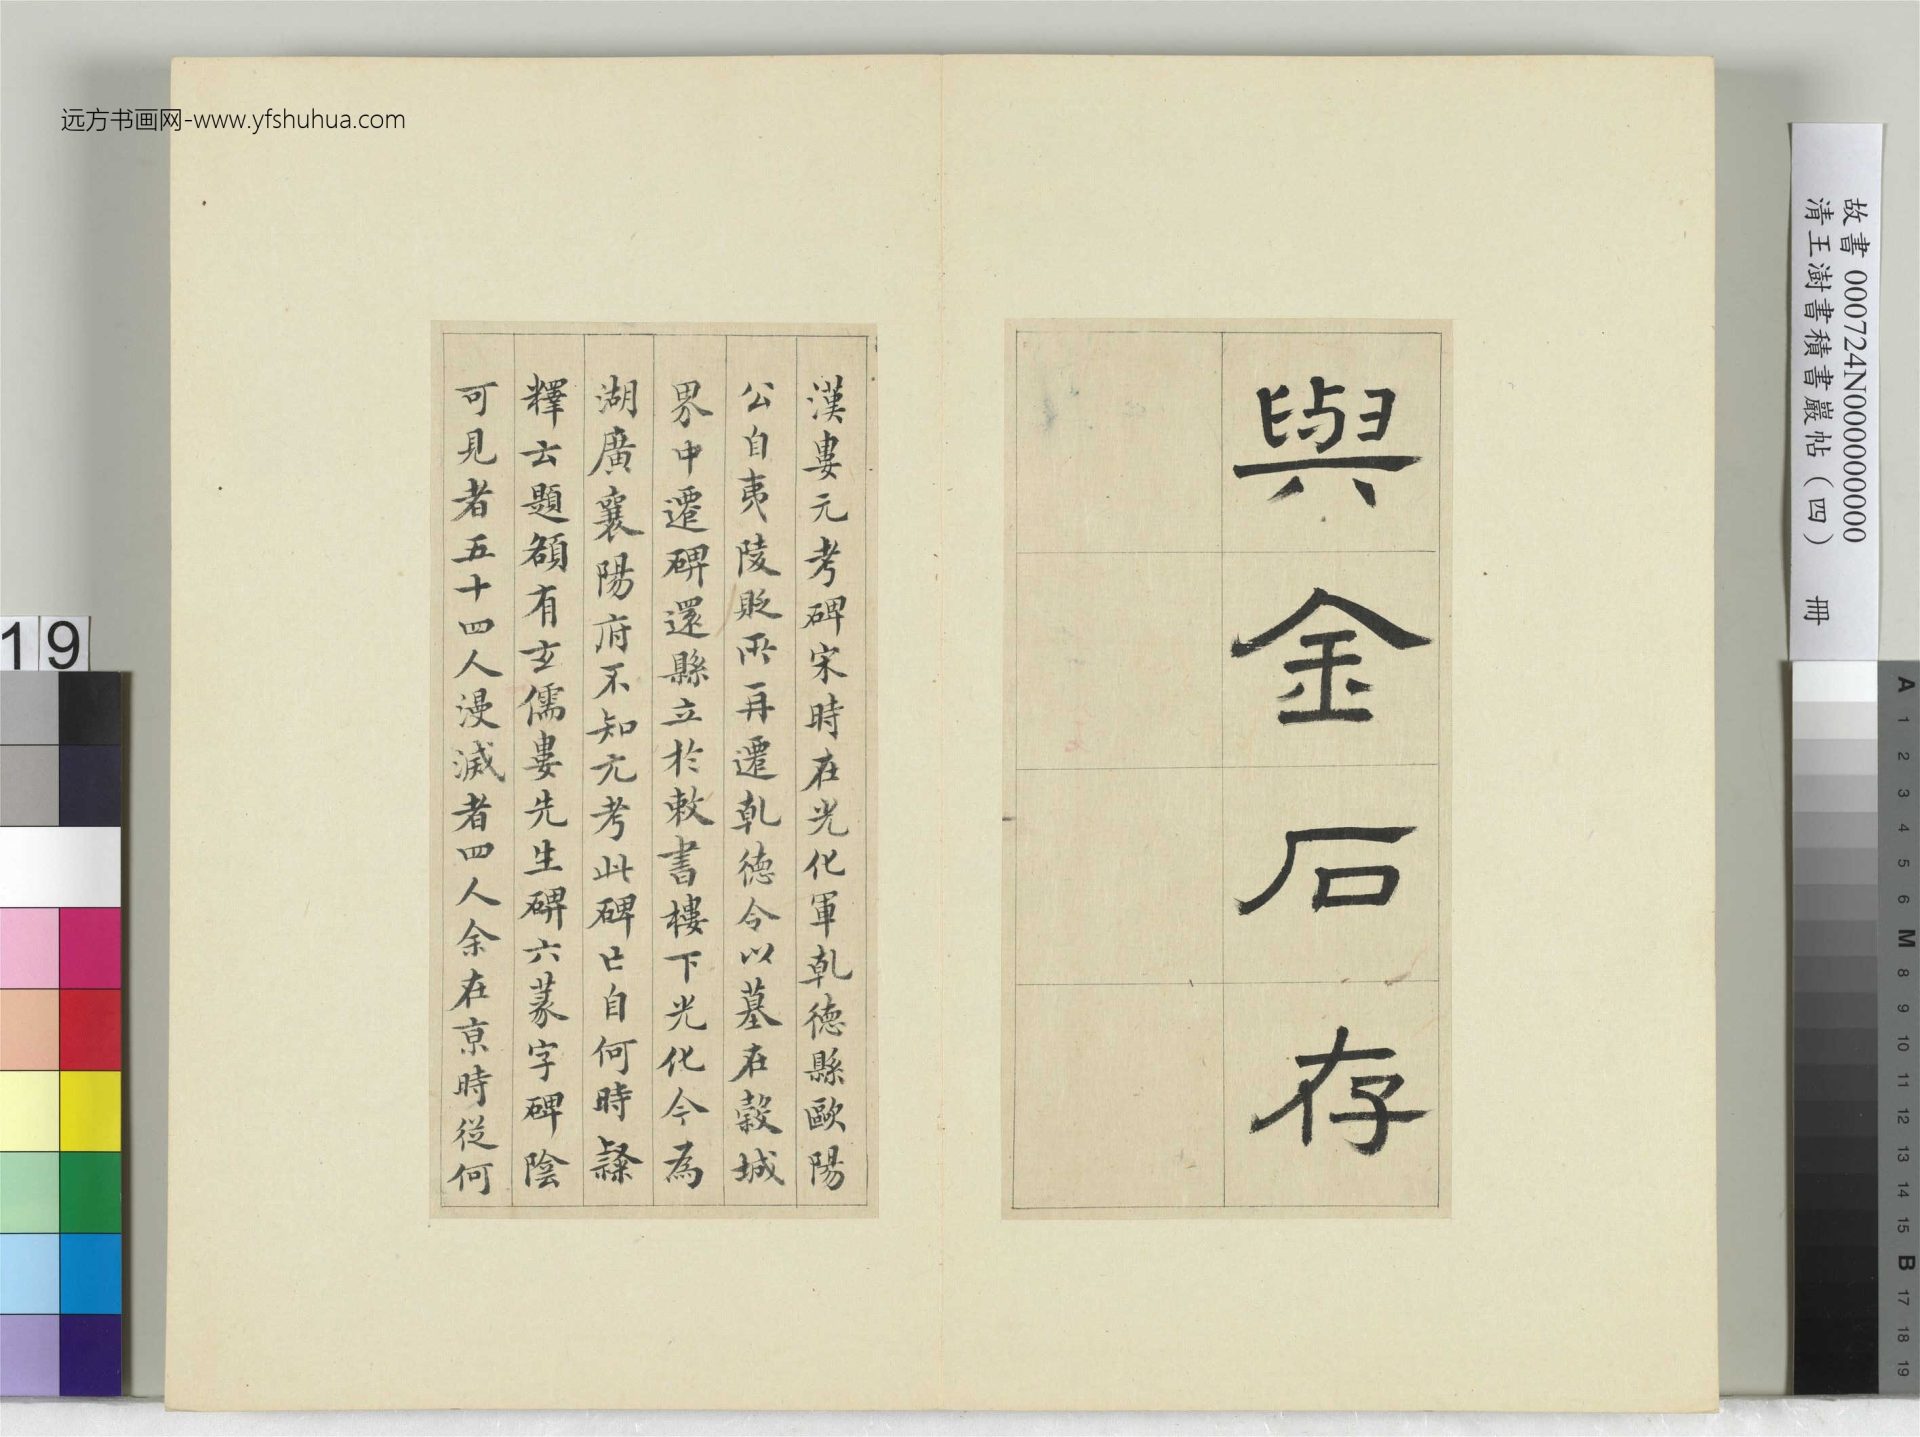 远方书画网-www.yfshuhua.com
與金石存
漢婁元考碑宋時在光化軍乹德縣歐陽
公自夷陵貶所再遷乹德令以墓在穀城
界中遷碑還縣立於敕書樓下光化今為
湖廣襄陽府不知元考此碑亡自何時隸
釋云題額有玄儒婁先生碑六篆字碑陰
可見者五十四人漫滅者四人余在京時從何
故書 000724N000000000
清王澍書積書巖帖（四） 冊
19
A 1 2 3 4 5 6 M 8 9 10 11 12 13 14 15 B 17 18 19